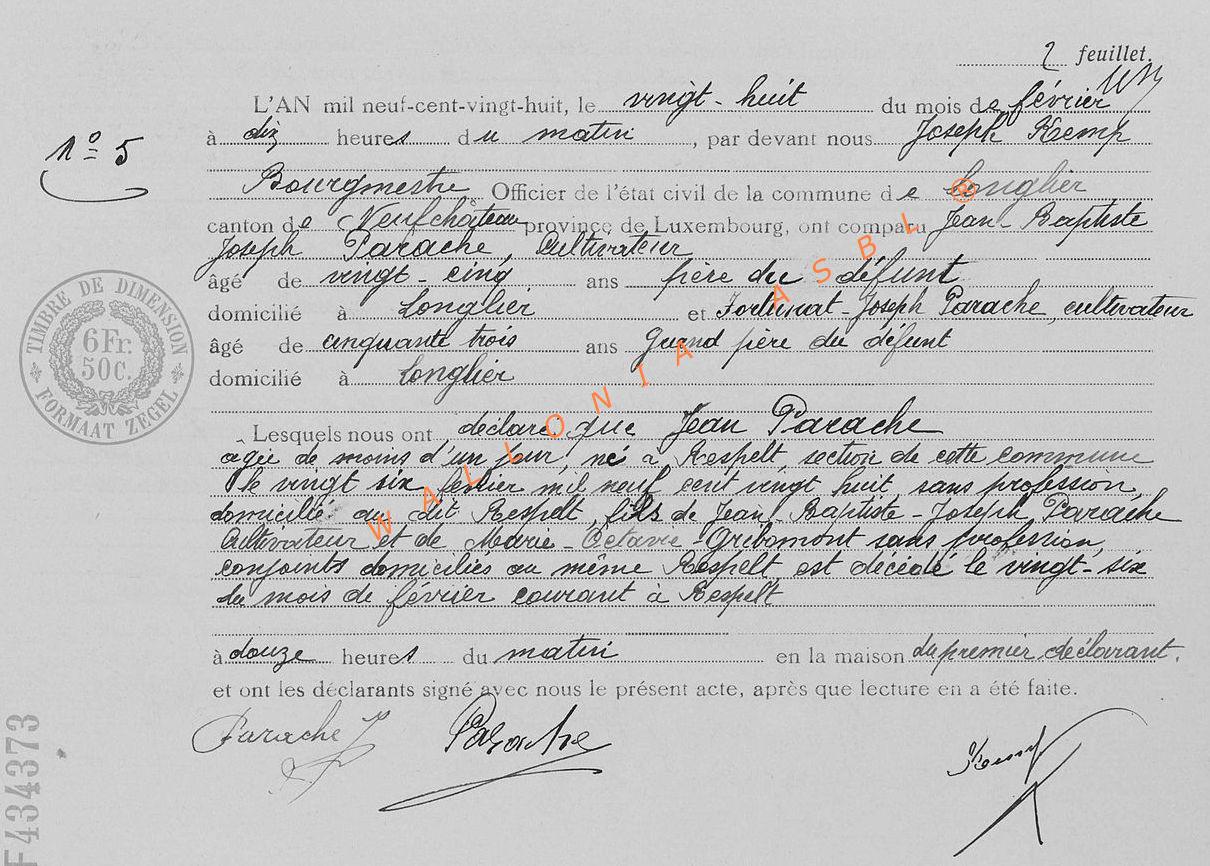 2 feuillet.
L'AN mil neuf-cent-vingt-huit, le vingt-huit du mois de février
à dix heures du matin, par devant nous Joseph Kemp
N° 5
Bourgmestre Officier de l'état civil de la commune de Longlier
canton de Neufchâteau province de Luxembourg, ont comparu Jean-Baptiste
Joseph Parache, Cultivateur
âgé de vingt-cinq ans père du défunt
domicilié à Longlier et Fortunat-Joseph Parache, cultivateur
âgé de cinquante trois ans Grand père du défunt
domicilié à Longlier
Lesquels nous ont déclaré que Jean Parache
agée de moins d'un jour, né à Respelt, section de cette commune
le vingt six février mil neuf cent vingt huit, sans profession,
domicilié au dit Respelt, fils de Jean-Baptiste-Joseph Parache
Cultivateur et de Marie-Octavie Gribomont sans profession,
conjoints domiciliés au même Respelt, est décédé le vingt-six
du mois de février courant à Respelt
à douze heures du matin en la maison du premier déclarant.
et ont les déclarants signé avec nous le présent acte, après que lecture en a été faite.
Parache J Parache Kemp
TIMBRE DE DIMENSION
6 Fr.
50 C.
FORMAAT ZEGEL
F434373
WALLONIA ASBL ®